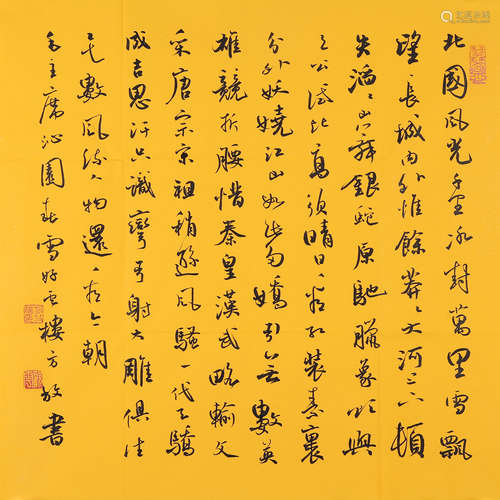 北國風光千里冰封萬里雪飄
望長城内外惟餘莽々大河上下頓
失滔々山舞銀蛇原馳臘象欲與
天公試比高須晴日看紅裝素裹
分外妖嬈江山如此多嬌引無數英
雄競折腰惜秦皇漢武略輸文
采唐宗宋祖稍遜風騷一代天驕
成吉思汗只識彎弓射大雕俱往
矣數風流人物還看今朝
毛主席沁園春雪好雲樓方放書